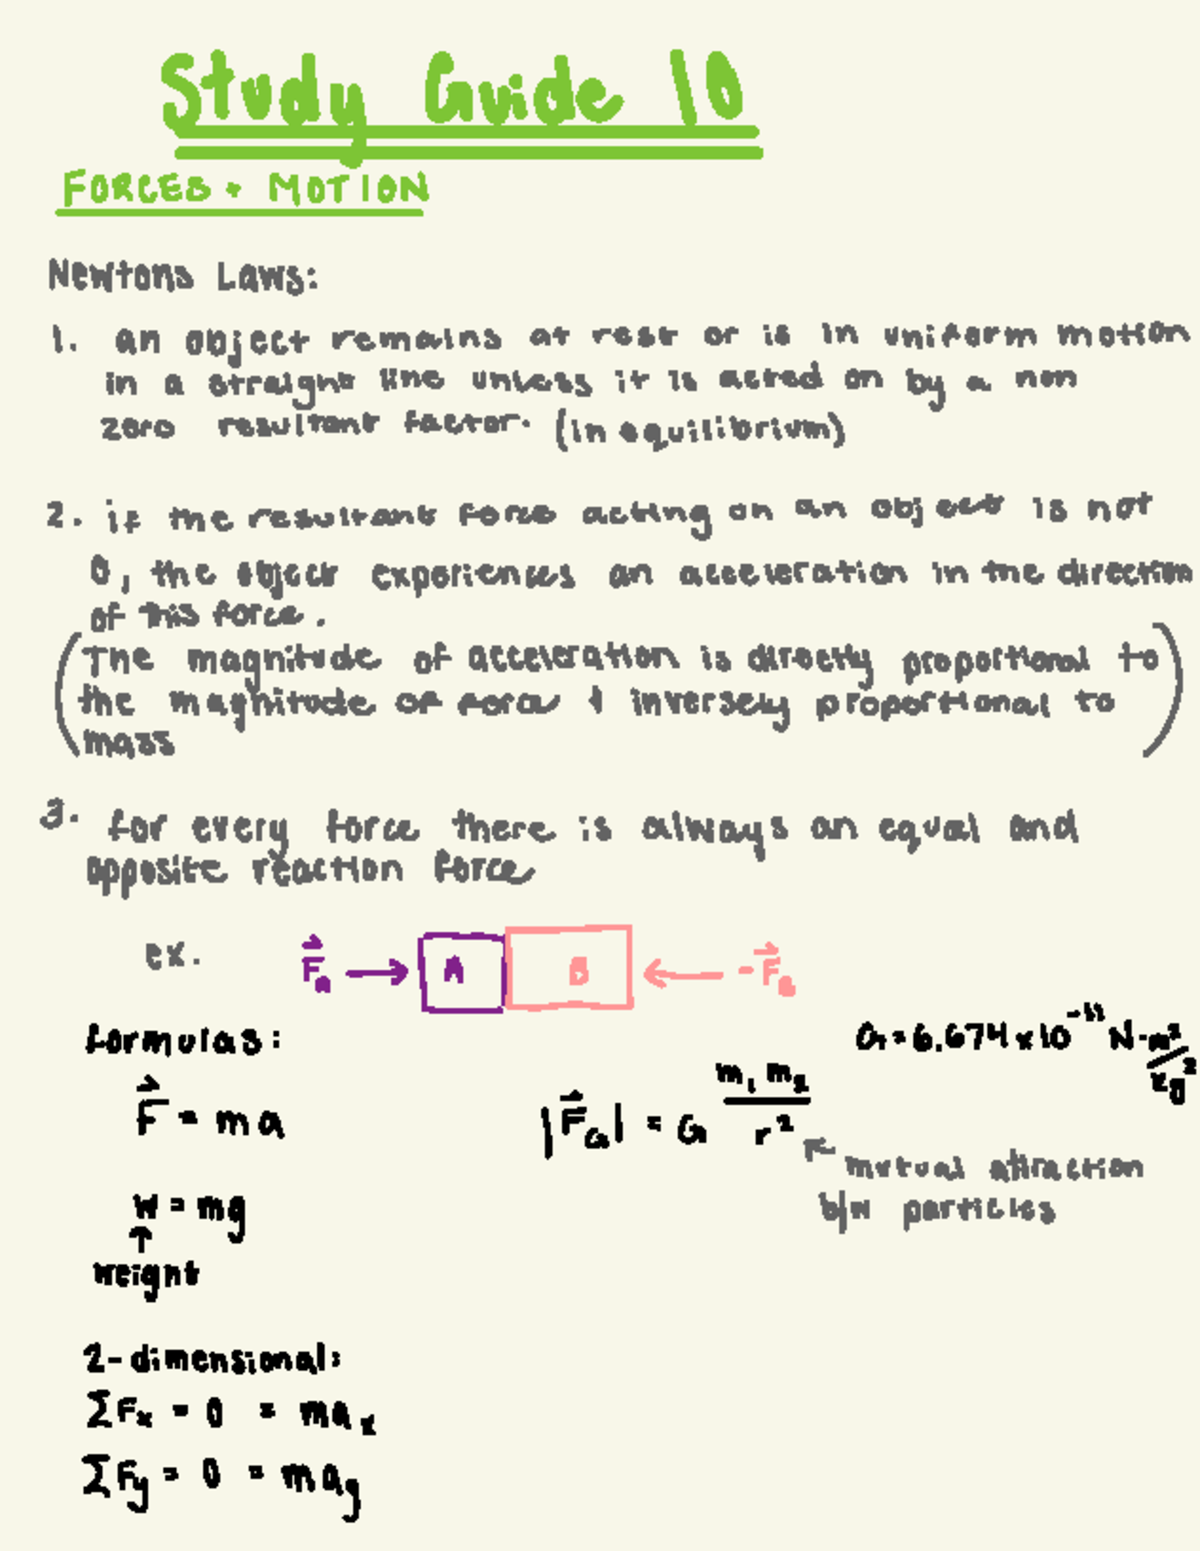 Study Guide 10
FORCES + MOTION
Newtons Laws:
1. an object remains at rest or is in uniform motion
in a straight line unless it is acted on by a non
zero resultant factor. (in equilibrium)
2. if the resultant force acting on an object is not
0, the object experiences an acceleration in the direction
of this force.
(The magnitude of acceleration is directly proportional to
the magnitude of force & inversely proportional to
mass)
3. for every force there is always an equal and
opposite reaction force
ex. F⃗a → A B ← -F⃗a
formulas:
G = 6.674 x 10⁻¹¹ N·m²/kg²
F⃗ = ma
|F⃗G| = G m₁ m₂ / r²
mutual attraction
b/w particles
W = mg
↑
weight
2-dimensional:
ΣFx = 0 = max
ΣFy = 0 = may